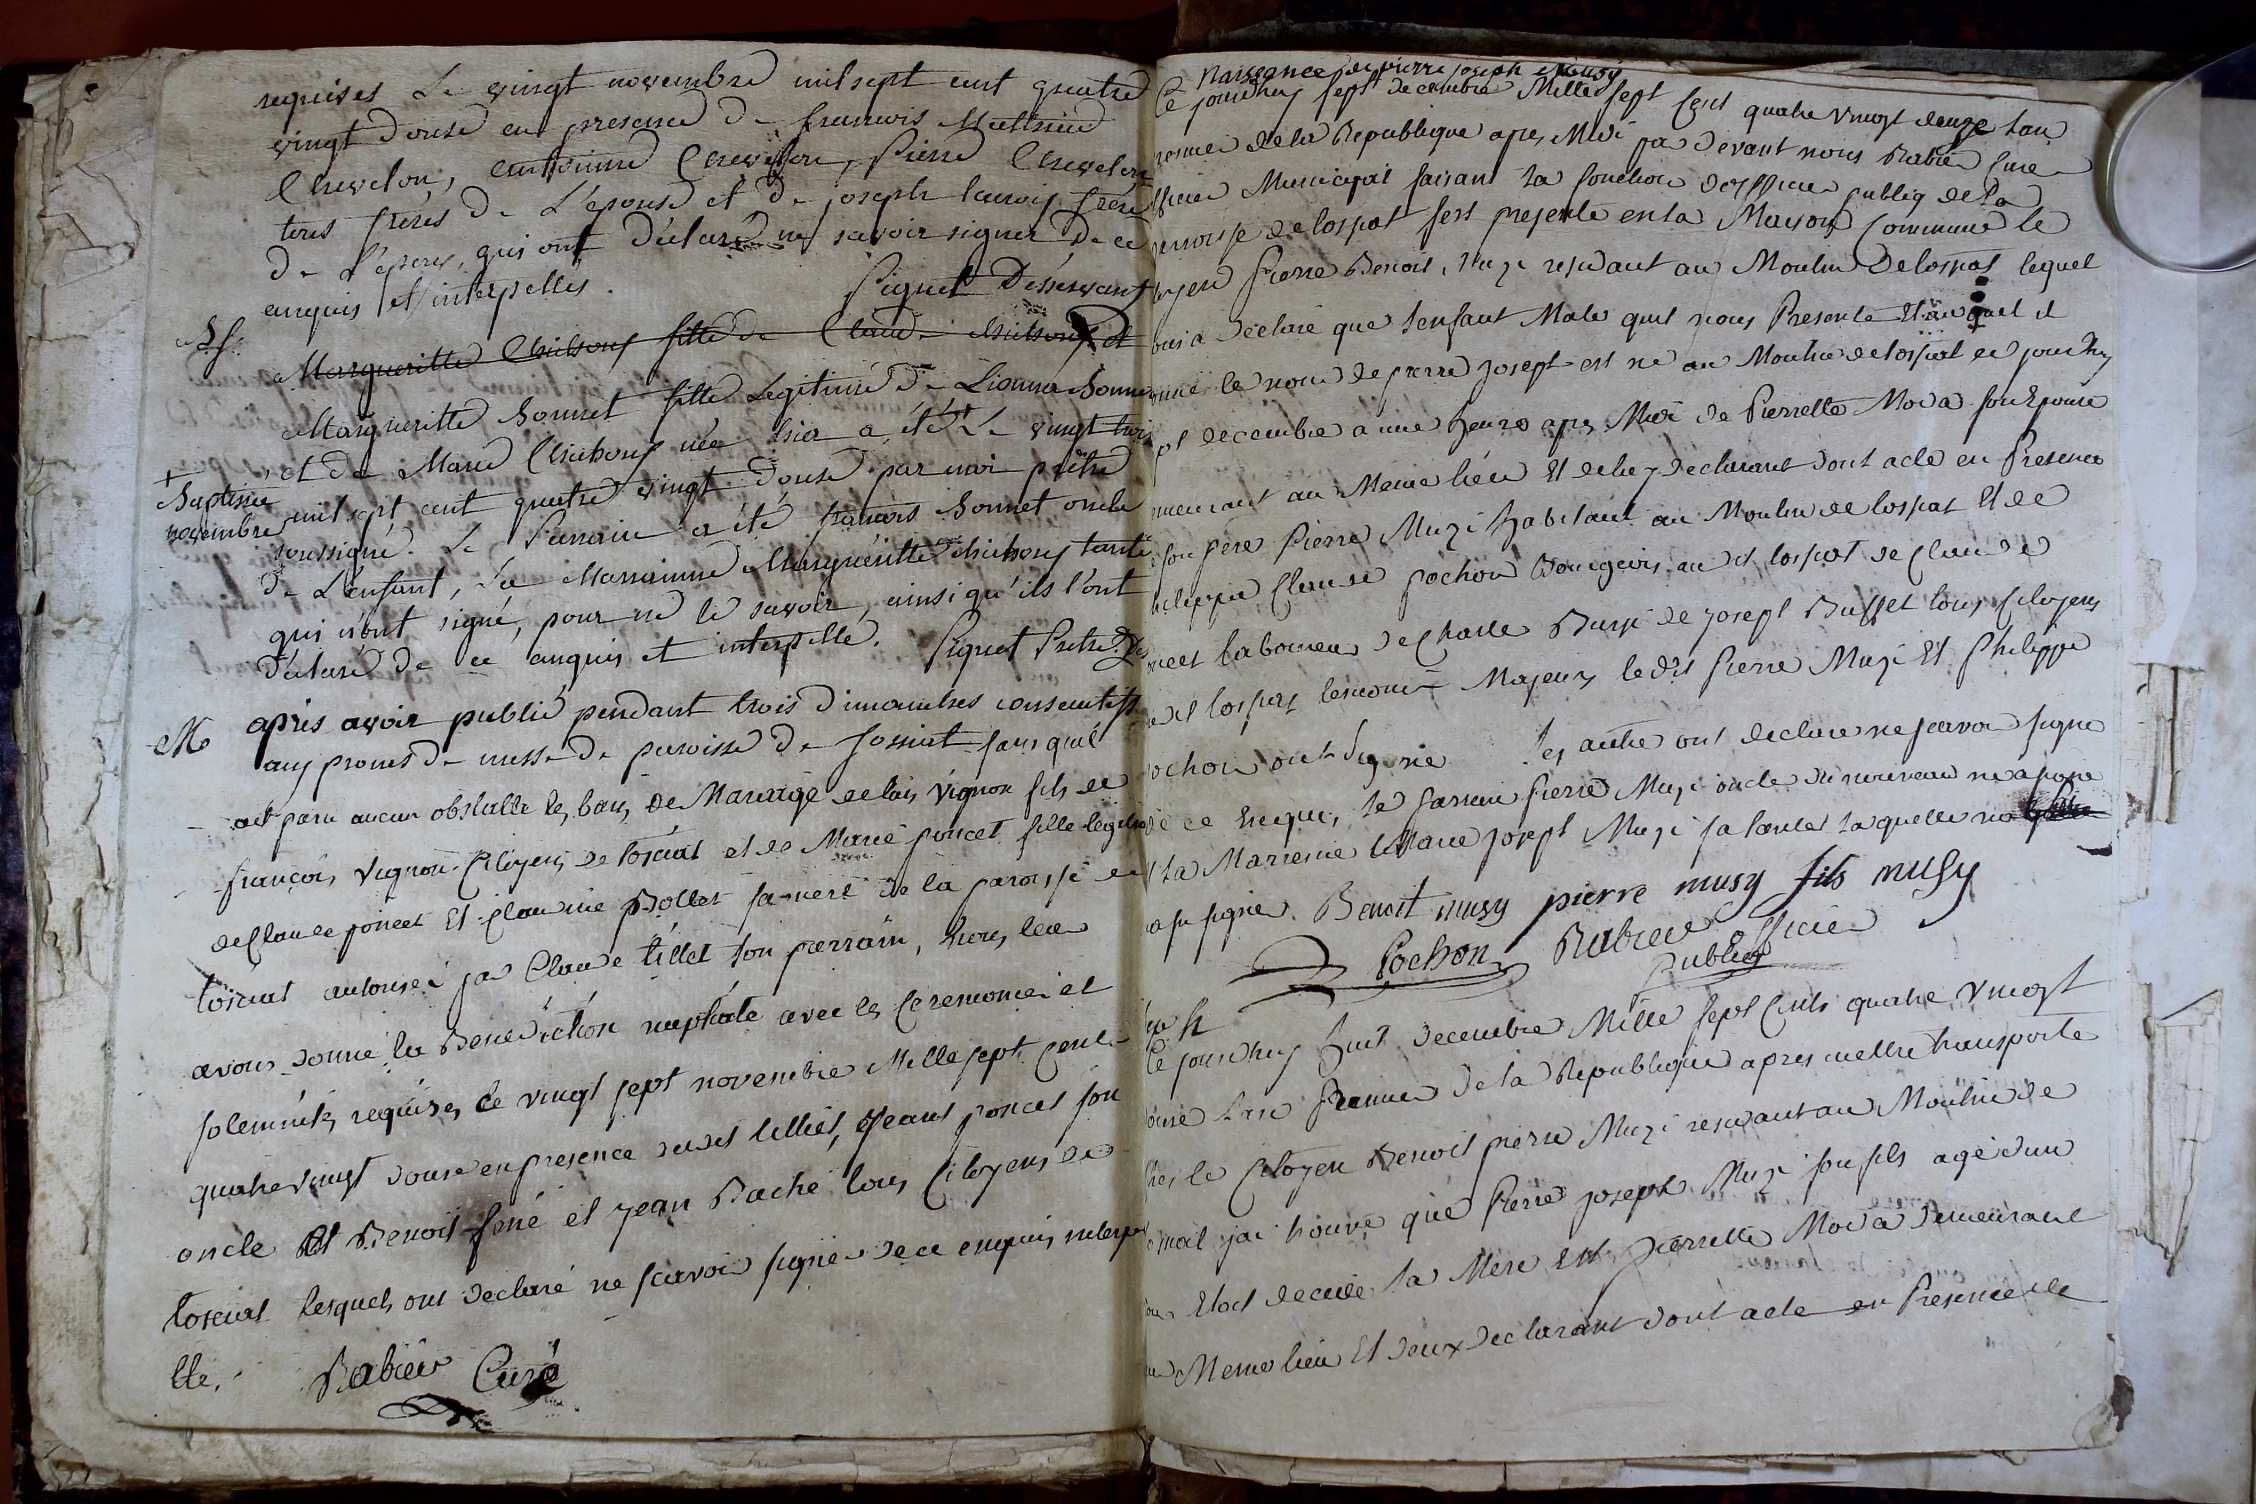 requises Le vingt novembre mil sept cent quatre
vingt douse en presence de francois Mathieu
Chevelon, anthoinne Chevelon, Pierre Chevelon
tous fréres de L'épouse et de joseph frére
de L'époux, qui ont déclaré ne savoir signer de ce
enquis et interpellés. Piquet Désservant
Margueritte Chichoux fille de Claude Chichoux et
Margueritte Bonnet fille Legitime de Bonnet
et de Marie Chichoux née hier a été Le vingt trois
+
Baptisée
novembre mil sept cent quatre vingt douse par moi prêtre
soussigné. Le Parrain a été francois Bonnet oncle
de L'enfant, La Marrainne Margueritte Chichoux tante
qui n'ont signé, pour ne le savoir, ainsi qu'ils l'ont
déclaré de ce enquis et interpellé. Piquet Prêtre Des
M après avoir publié pendant trois dimanches consecutifs
aux prones de messe de paroisse de Jossiat sans quil
ait paru aucun obstacle les bans de Mariage de lais Vignon fils de
françois Vignon Citoyens de losciat et de Marie poncet fille legitime
de Claude poncet Et Claudine Bollet sa mere de la paroisse de
losciat autorisée par Claude tillet son parrain, Nous leur
avons donné la Benediction nuptiale avec les Ceremonies et
solemnités requises Le vingt sept novembre Mille sept Cent
quatre vingt douse en presence dudit tilliet, jeant poncet son
oncle Et Benoit fené et jean Baché tous Citoyens de
losciat lesquels ont declaré ne scavoir signer de ce enquis interpe
lle. Rabier Curé
Naissance de pierre joseph Musy
Ce jourdhuy sept decembre Mille sept Cent quatre vingt douze lan
premier de la Republique apres Midi par devant nous Rabier Cure
officier Municipal faisant la fonction dofficier publiq de la
paroisse de lospat sest presenté en la Maison Commune le
Citoyen Pierre Benoit Muzi residant au Moulin de lospat lequel
nous a declaré que lenfant Male quil nous Presente Et auquel il
donné le nom de pierre josept est né au Moulin de lospat ce jourdhuy
sept decembre a une heure apres Midi de Pierrette Moda son Epouse
demeurant au Meme lieu Et de luy declarant dont acte en Presence
de son pere Pierre Muzi habitant au Moulin de lospat Et de
philippe Claude pochon Bourgeois au dit lospat de Claude
poncet laboureur de Charle Burji de josept Buffet tous Citoyens
dudit lospat Majeurs ledit pierre Muzi Et philippe
pochon ont signé les autre ont declaré ne scavoir signé
de ce Enquis, le parrain pierre Muzi oncle du nouveau né
Et la Marrenie Marie josept Muzi sa tante laquelle na
a su signer. Benoit musy pierre musy fils musy
Pochon Rabier officier
Publiq
Ce jourdhuy huit decembre Mille sept Cents quatre vingt
douze Lan premier de la Republique apres mettre transporté
ches le Citoyen Benoit pierre Muzi residant au Moulin de
jai trouvé que Pierre joseph Muzi son fils agé dun
jour Etoit decedé, la Mere Est pierrette Moda demeurant
au Meme lieu Et deux declarant dont acte en Presence de